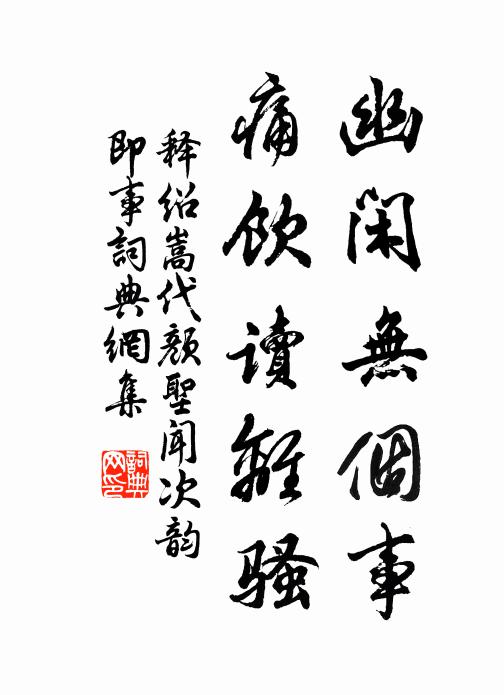 幽閑無個事
痛飲讀離騷
释绍嵩代顏聖聞次韵
即事詞典網集
詞典网印